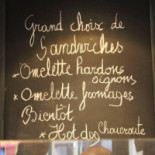 Grand choix de
Sandwiches
* Omelette lardons
oignons
* Omelette fromages
Bientôt
* Hot dog Choucroute